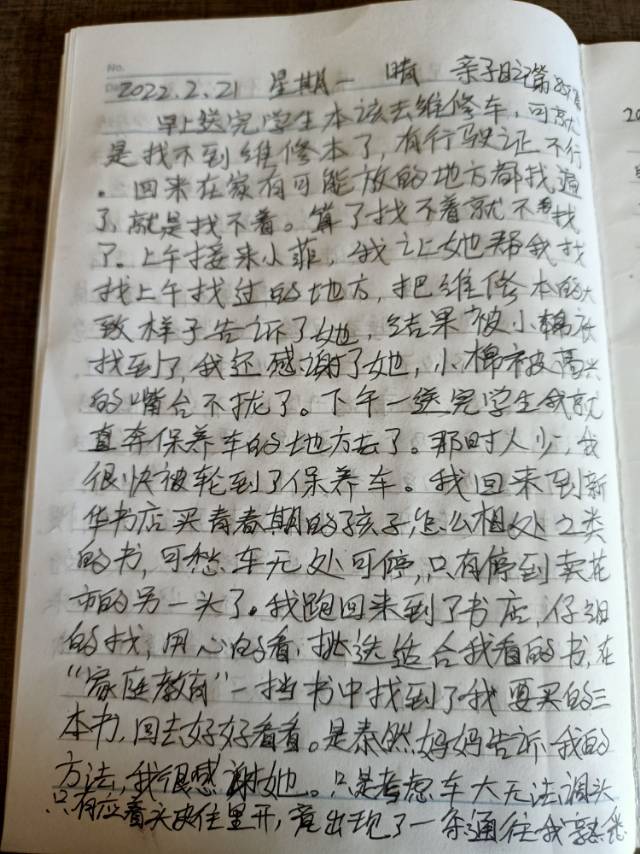 No.
2022.2.21 星期一 晴 亲子日记第
早上送完学生本该去维修车,可就
是找不到维修本了,有行驶证不行
。回来在家有可能放的地方都找遍
了,就是找不着。算了找不着就不找
了。上午接来小菲,我让她帮我找
找上午找过的地方,把维修本的大
致样子告诉了她,结果被小棉袄
找到了,我还感谢了她,小棉袄高兴
的嘴合不拢了。下午一送完学生我就
直奔保养车的地方去了。那时人少,我
很快被轮到了保养车。我回来到新
华书店买青春期的孩子怎么相处之类
的书,可愁车无处可停,只有停到卖花
市的另一头了。我跑回来到了书店,仔细
的找,用心的看,挑选适合我看的书,在
“家庭教育”一档书中找到了我要买的三
本书,回去好好看看。是泰然妈妈告诉我的
方法,我很感谢她。只是考虑车大无法调头
只有应着头皮往里开,竟出现了一条通往我熟悉